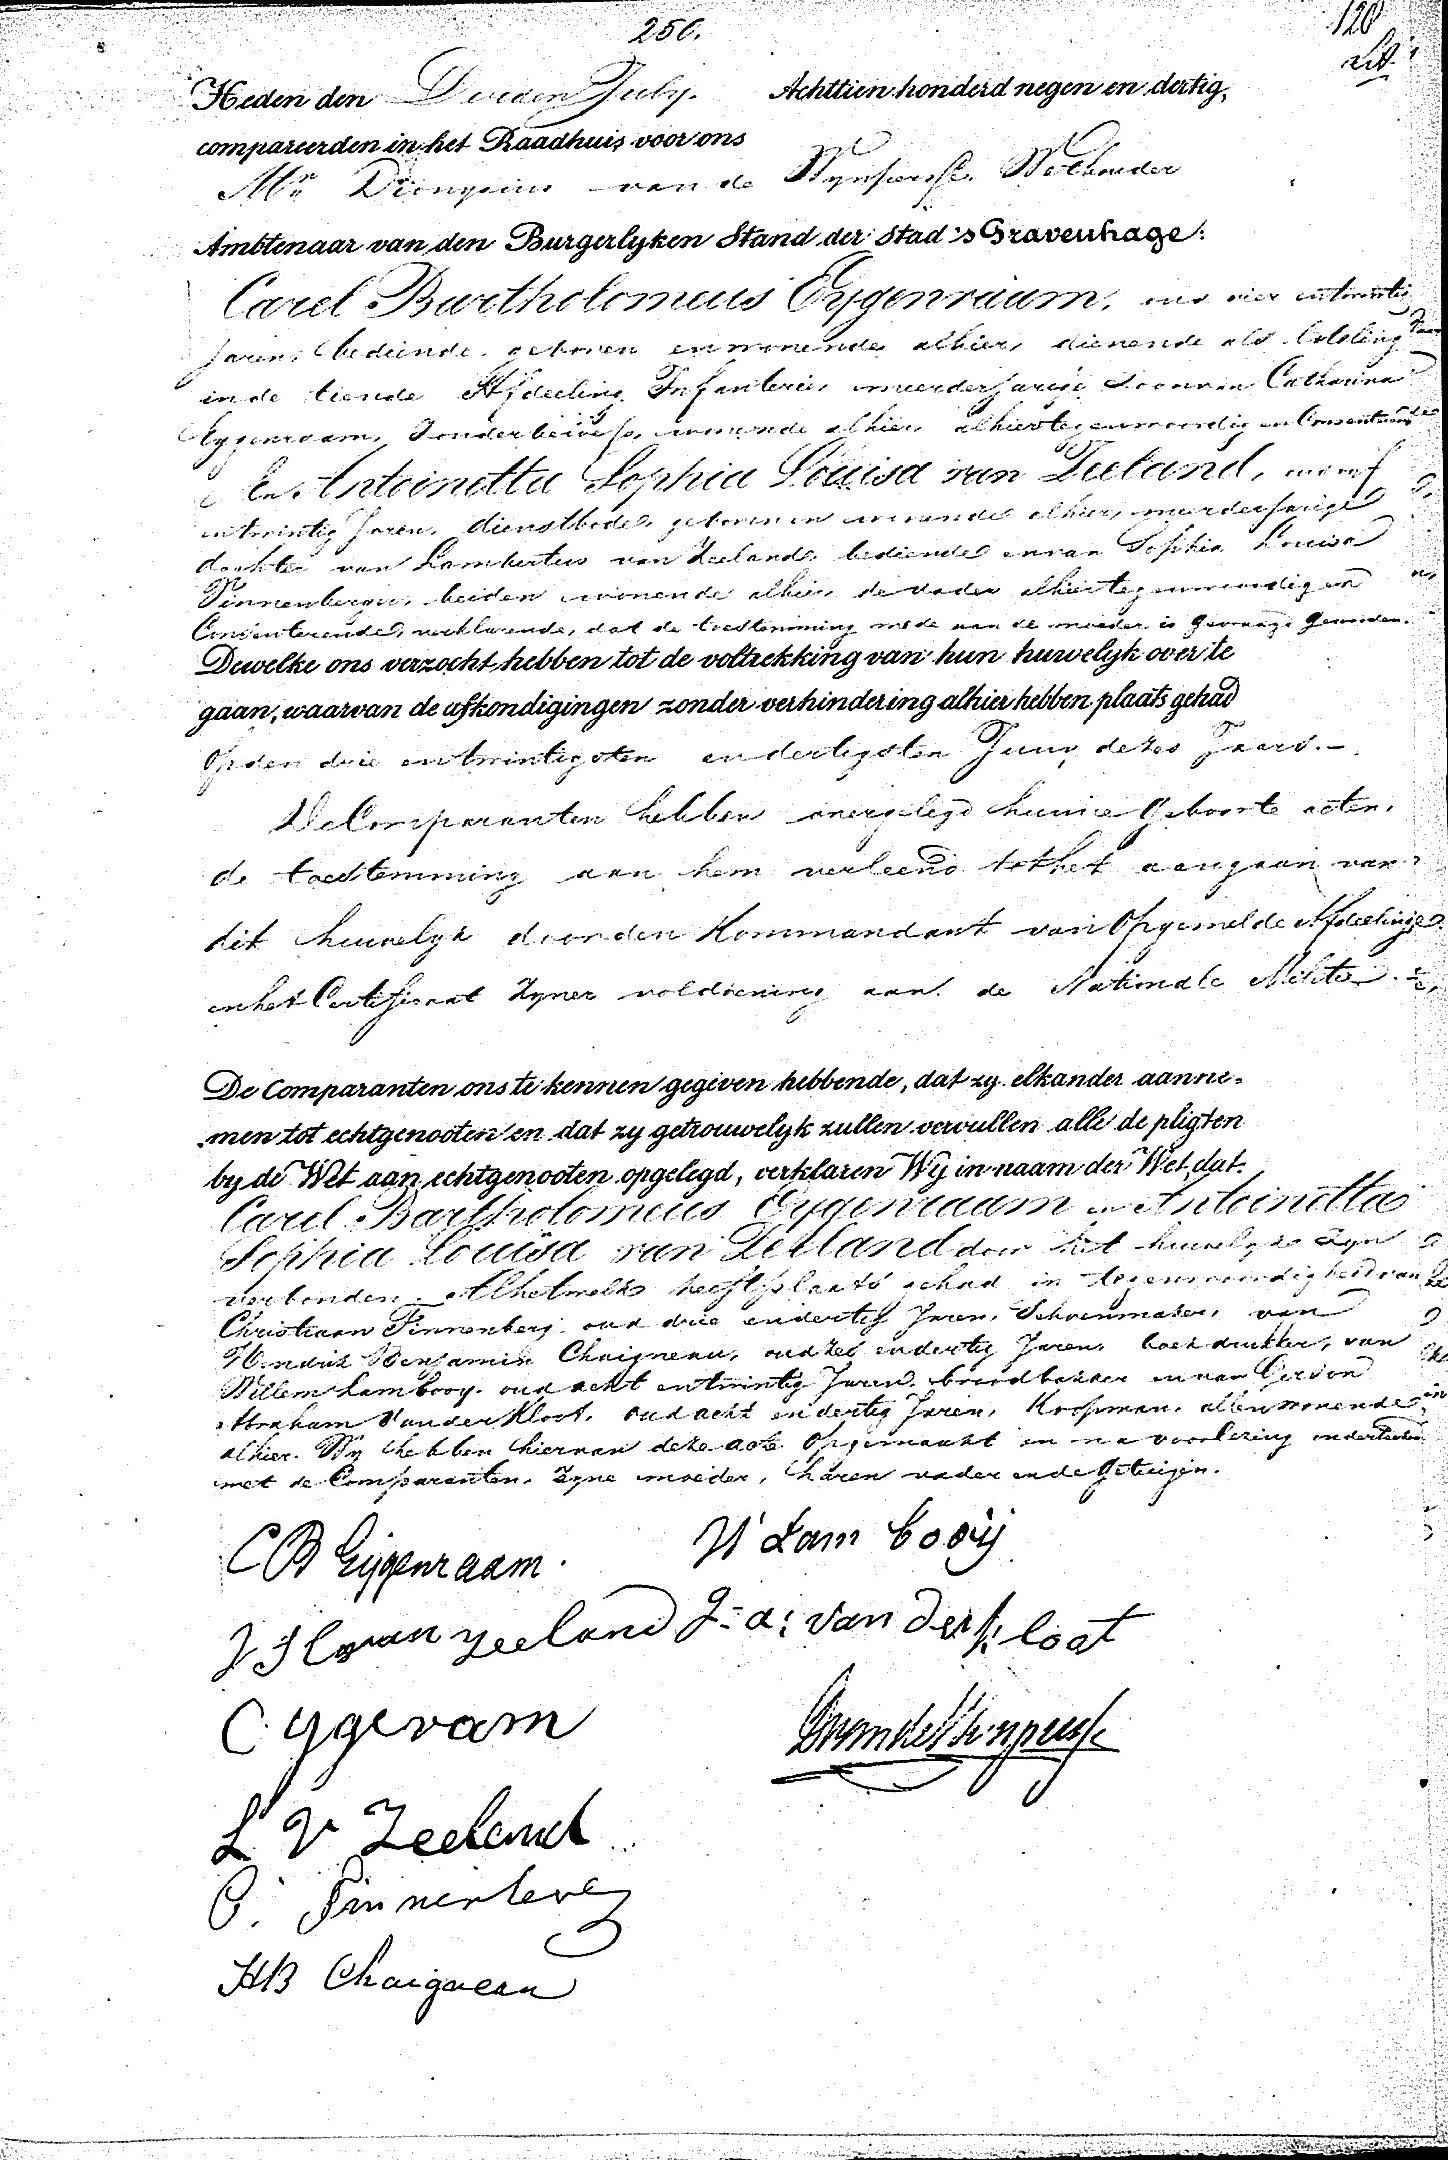 250.
120
Heden den Derden July. Achttien honderd negen en dertig,
compareerden in het Raadhuis voor ons
Mr. Dionysius van de Wynpersse, Wethouder
Ambtenaar van den Burgerlyken Stand der Stad 's Gravenhage:
Carel Bartholomeus Eygenraam, oud vier entwintig
Jaren, bediende, geboren enwonende alhier, dienende als loteling
inde tiende Afdeeling Infanterie, meerderjarige Zoon van Catharina
Eygenraam, Zonder beroep, wonende alhier, alhier tegenwoordig en Consenterende
En Antoinetta Sophia Louisa van Zeeland, oud vyf
entwintig Jaren, dienstbode, geboren en wonende alhier, meerderjarige
dochter van Lambertus van Zeeland, bediende en van Sophia Louisa
Finnenberg, beiden wonende alhier, de vader alhier tegenwoordig en
Consenterende, verklarende, dat de toestemming mede aan de moeder is gevraagd geworden.
Dewelke ons verzocht hebben tot de voltrekking van hun huwelyk over te
gaan, waarvan de afkondigingen zonder verhindering alhier hebben plaats gehad
Op den drie entwintigsten en dertigsten Juny dezes Jaars.
De Comparanten hebben overgelegd hunne Geboorte acten,
de toestemming aan hem verleend tot het aangaan van
dit huwelyk door den Kommandant van Opgemelde Afdeeling
en het Certificaat Zyner voldoening aan de Nationale Militie.
De Comparanten ons te kennen gegeven hebbende, dat zy elkander aanne-
men tot echtgenooten en dat zy getrouwelyk zullen vervullen alle de pligten
by de Wet aan echtgenooten opgelegd, verklaren Wy in naam der Wet, dat
Carel Bartholomeus Eygenraam en Antoinetta
Sophia Louisa van Zeeland door het huwelyk Zyn
verbonden. Al hetwelk heeft plaats gehad in tegenwoordigheid van
Christiaan Finnenberg, oud drie en dertig Jaren, Schoenmaker, van
Hendrik Benjamin Chaigneau, oud zes en dertig Jaren, boekdrukker, van
Willem Lambooy, oud acht entwintig Jaren, broodbakker en van Gerson
Abraham Van der Kloot, oud acht en dertig Jaren, Koopman, allen wonende
alhier. Wy hebben hiervan deze acte Opgemaakt en na voorlezing onderteekend
met de Comparanten, Zyne moeder, haren vader en de Getuigen.
C B Eijgenraam.
W Lambooij
van Zeeland
G. a: van der kloot
C. ygeram
L V Zeeland
C. Finnenberg
HB Chaigneau